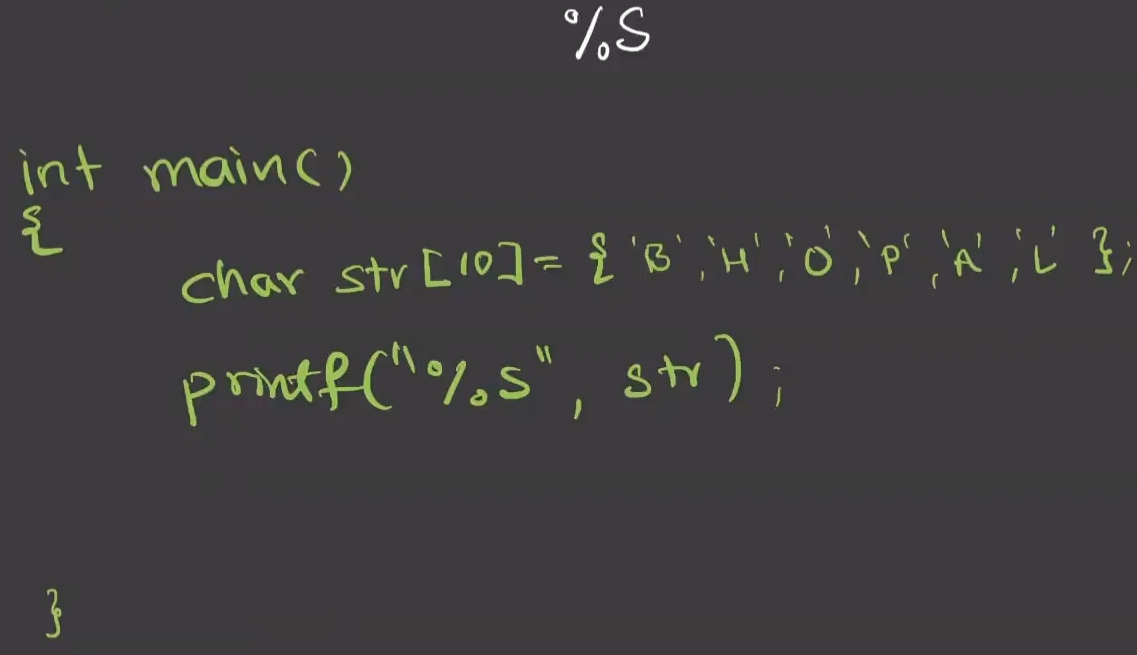 %s
int main()
{
char str[10]= { 'B', 'H', 'O', 'P', 'A', 'L' };
printf("%s", str);
}